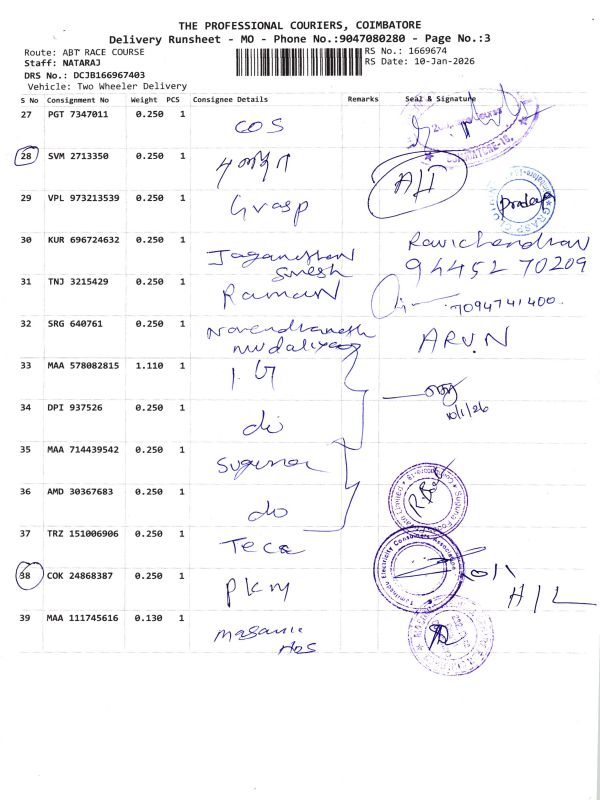 THE PROFESSIONAL COURIERS, COIMBATORE
Delivery Runsheet - MO - Phone No.:9047080280 - Page No.:3
Route: ABT RACE COURSE
RS No.: 1669674
Staff: NATARAJ
RS Date: 10-Jan-2026
DRS No.: DCJB166967403
Vehicle: Two Wheeler Delivery
S No Consignment No Weight PCS Consignee Details Remarks Seal & Signature
27 PGT 7347011 0.250 1 COS
28 SVM 2713350 0.250 1
29 VPL 973213539 0.250 1 Grasp Pradeep
30 KUR 696724632 0.250 1 Suresh Ravichandran
94452 70209
31 TNJ 3215429 0.250 1 Raman 7094741400.
32 SRG 640761 0.250 1 mudaliyar ARUN
33 MAA 578082815 1.110 1 10/1/26
34 DPI 937526 0.250 1 do
35 MAA 714439542 0.250 1 Suguna
36 AMD 30367683 0.250 1 do
37 TRZ 151006906 0.250 1 Teca
38 COK 24868387 0.250 1 PKM H/L
39 MAA 111745616 0.130 1 Hos